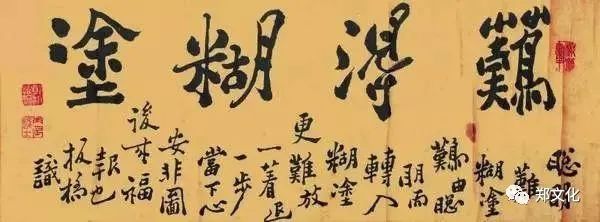 難得糊塗
聰明
難
糊塗
難由聰
明而
轉入
糊塗
更難放
一著退
一步
當下心
安非圖
後来福
報也
板橋
識
郑文化